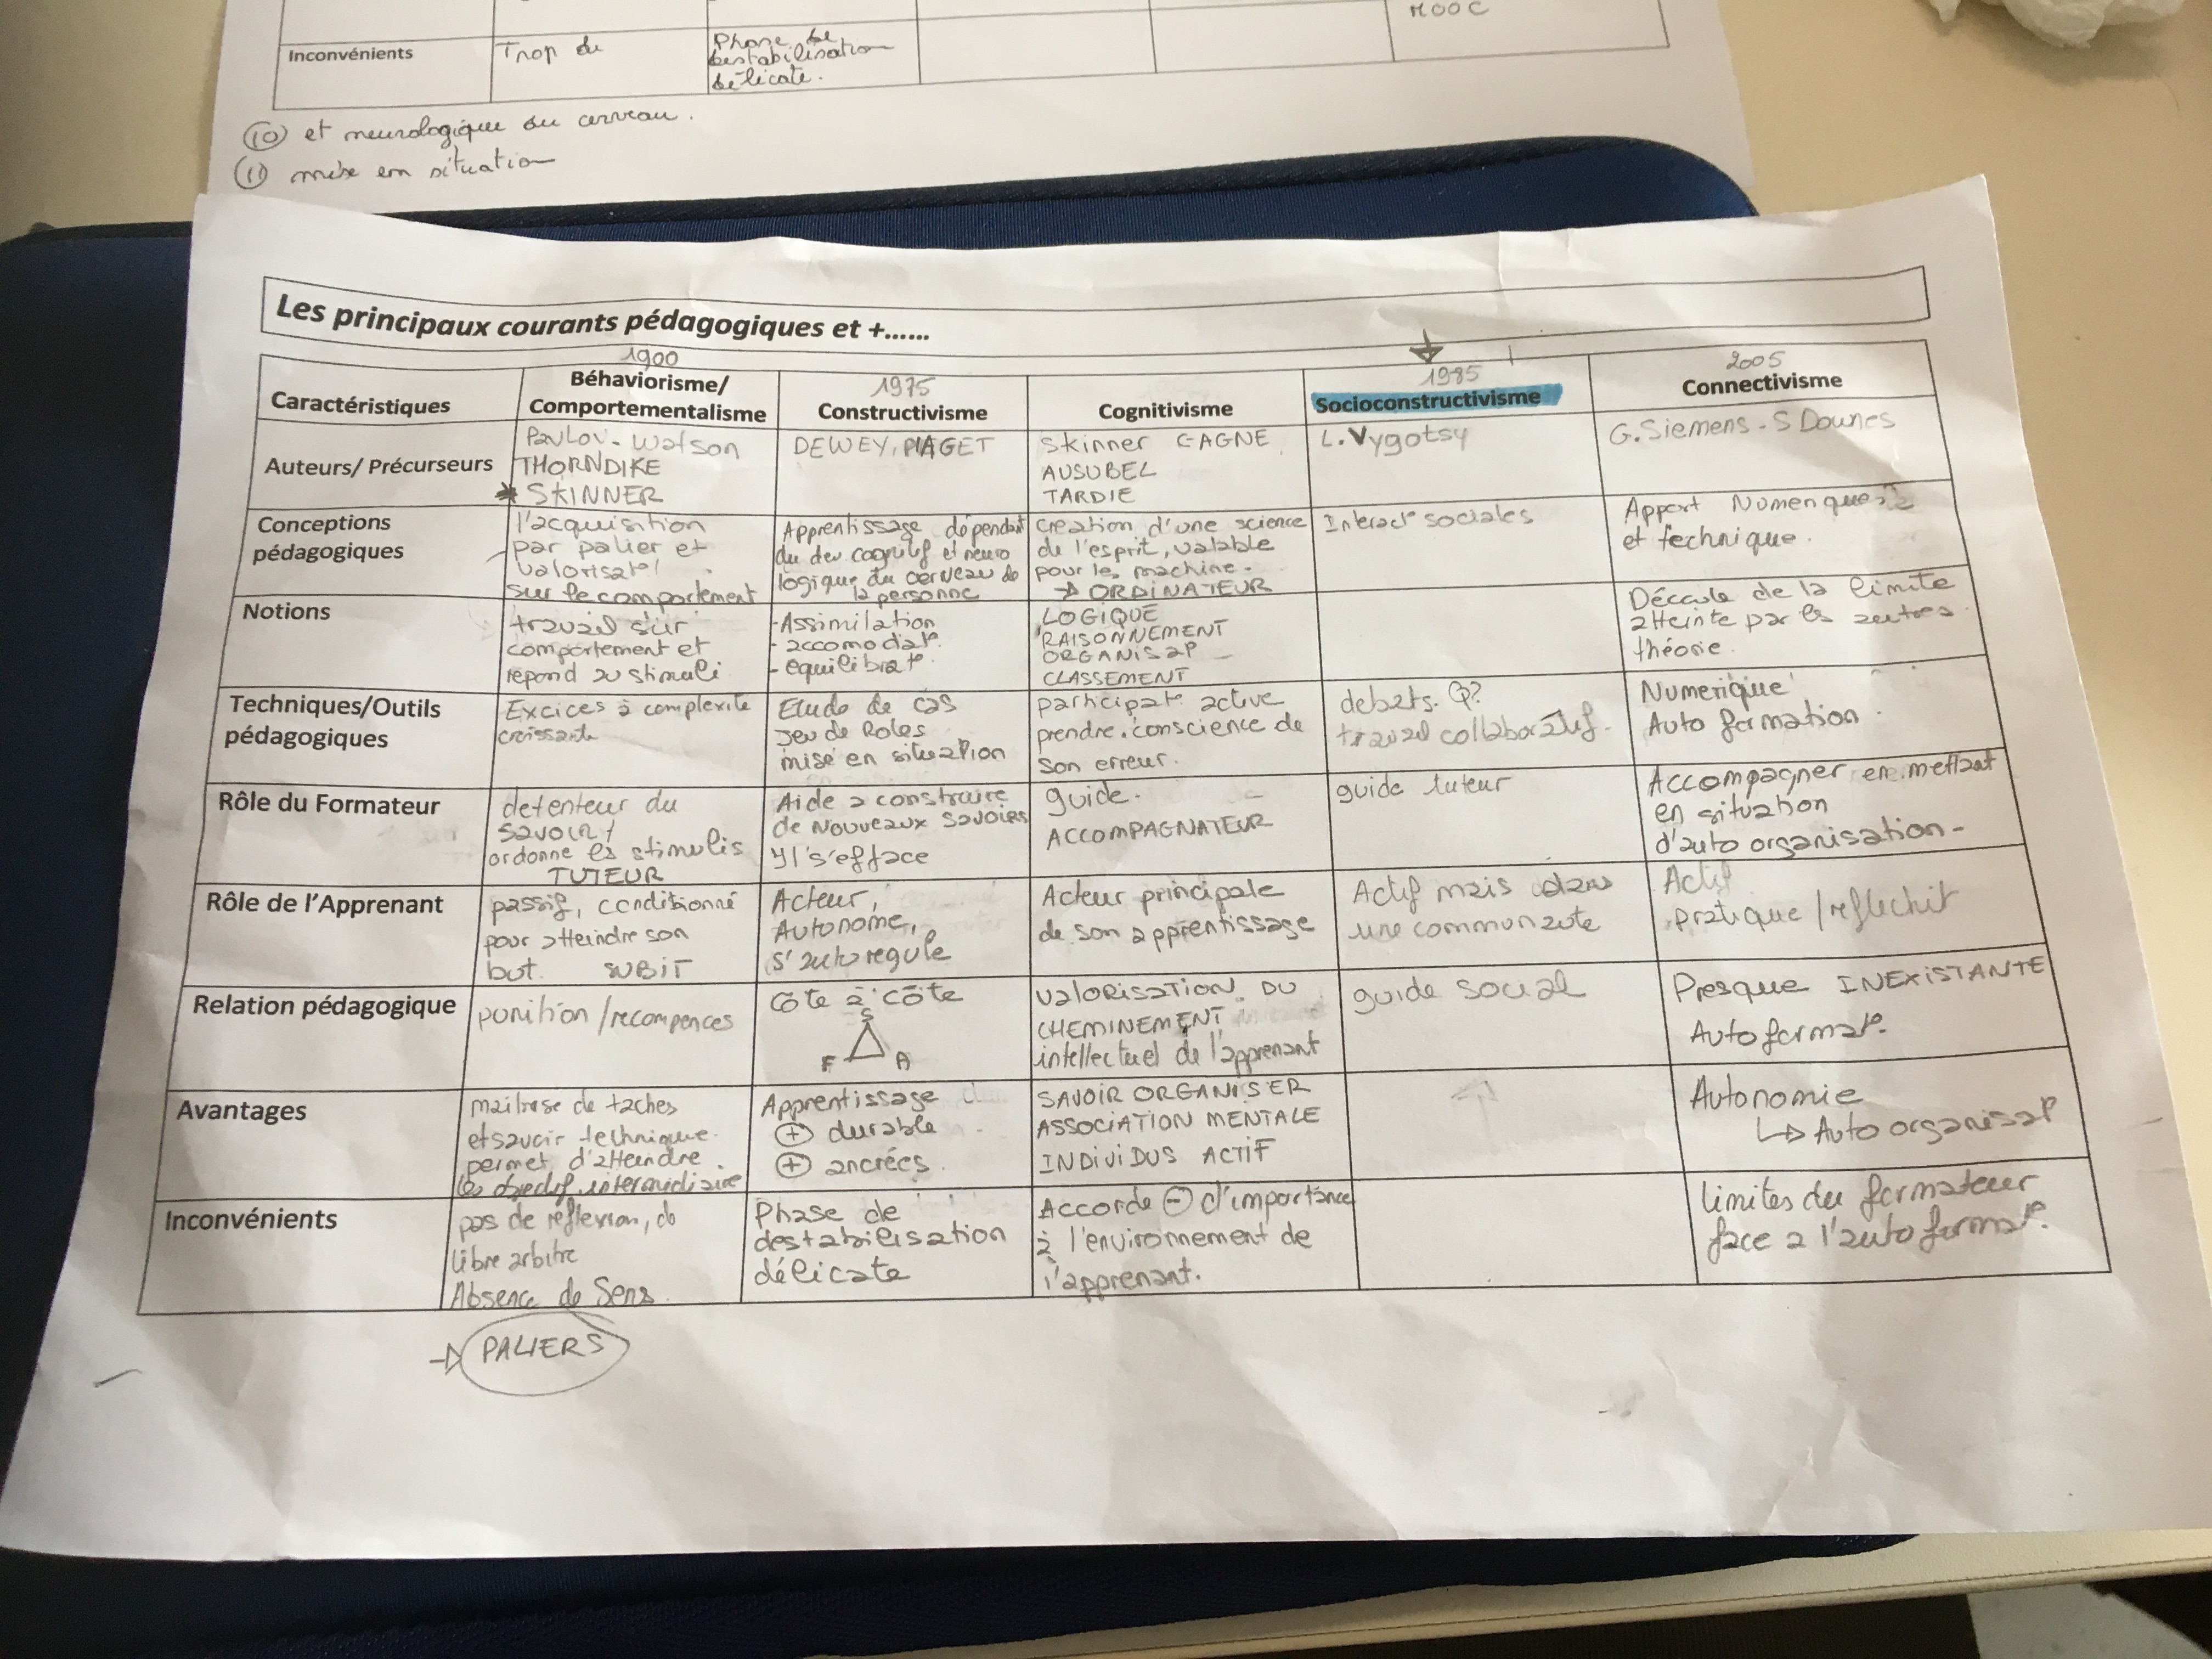 Les principaux courants pédagogiques et +……
Caractéristiques
1900
Béhaviorisme/
Comportementalisme
1975
Constructivisme
Cognitivisme
1995
Socioconstructivisme
2005
Connectivisme
Auteurs/ Précurseurs
Pavlov - Watson
THORNDIKE
* SKINNER
DEWEY, PIAGET
Skinner GAGNE
AUSUBEL
TARDIE
L. Vygotsy
G. Siemens - S Downes
Conceptions
pédagogiques
l'acquisition
par palier et
valorisat°
sur le comportement
Apprentissage dépendant
du dev cognitif et neuro
logique du cerveau de
la personne
création d'une science
de l'esprit, valable
pour les machine -
→ ORDINATEUR
Interact° sociales
Apport Numérique
et technique.
Notions
travail sur
comportement et
repond au stimuli
- Assimilation
- accomodat°
- equilibrat°
LOGIQUE
RAISONNEMENT
ORGANISAT°
CLASSEMENT
Décaule de la limite
atteinte par les autres
théorie.
Techniques/Outils
pédagogiques
Excices à complexite
croissante
Etude de cas
Jeu de Roles
mise en situation
participat° active
prendre conscience de
son erreur.
debats.
travail collaboratif.
Numerique
Auto formation.
Rôle du Formateur
detenteur du
savoir
ordonne les stimulis
TUTEUR
Aide a construire
de nouveaux savoirs
y l's'efface
guide.
ACCOMPAGNATEUR
guide tuteur
Accompagner en mettant
en situation
d'auto organisation -
Rôle de l'Apprenant
passif, conditionné
pour atteindre son
but. SUBIT
Acteur,
Autonome,
s'autoregule
Acteur principale
de son apprentissage
Actif mais dans
une communaute
Actif
pratique / reflechit
Relation pédagogique
ponition / recompences
côte à côte
S
F A
valorisation DU
CHEMINEMENT
intellectuel de l'apprenant
guide social
Presque INEXISTANTE
Autoformat°.
Avantages
maitrise de taches
et savoir technique.
permet d'atteindre
les objectif intermediaire
Apprentissage
⊕ durable
⊕ ancrées.
SAVOIR ORGANISER
ASSOCIATION MENTALE
INDIVIDUS ACTIF
Autonomie
↳ Auto organisat°
Inconvénients
pas de reflexion, de
libre arbitre
Absence de Sens.
Phase de
destabilisation
délicate
Accorde ⊖ d'importance
à l'environnement de
l'apprenant.
limites du formateur
face a l'autoformat°.
→ PALIERS
Inconvénients
Trop de
Phase de
destabilisation
délicate.
MOOC
(10) et neurologique du cerveau.
(11) mise en situation